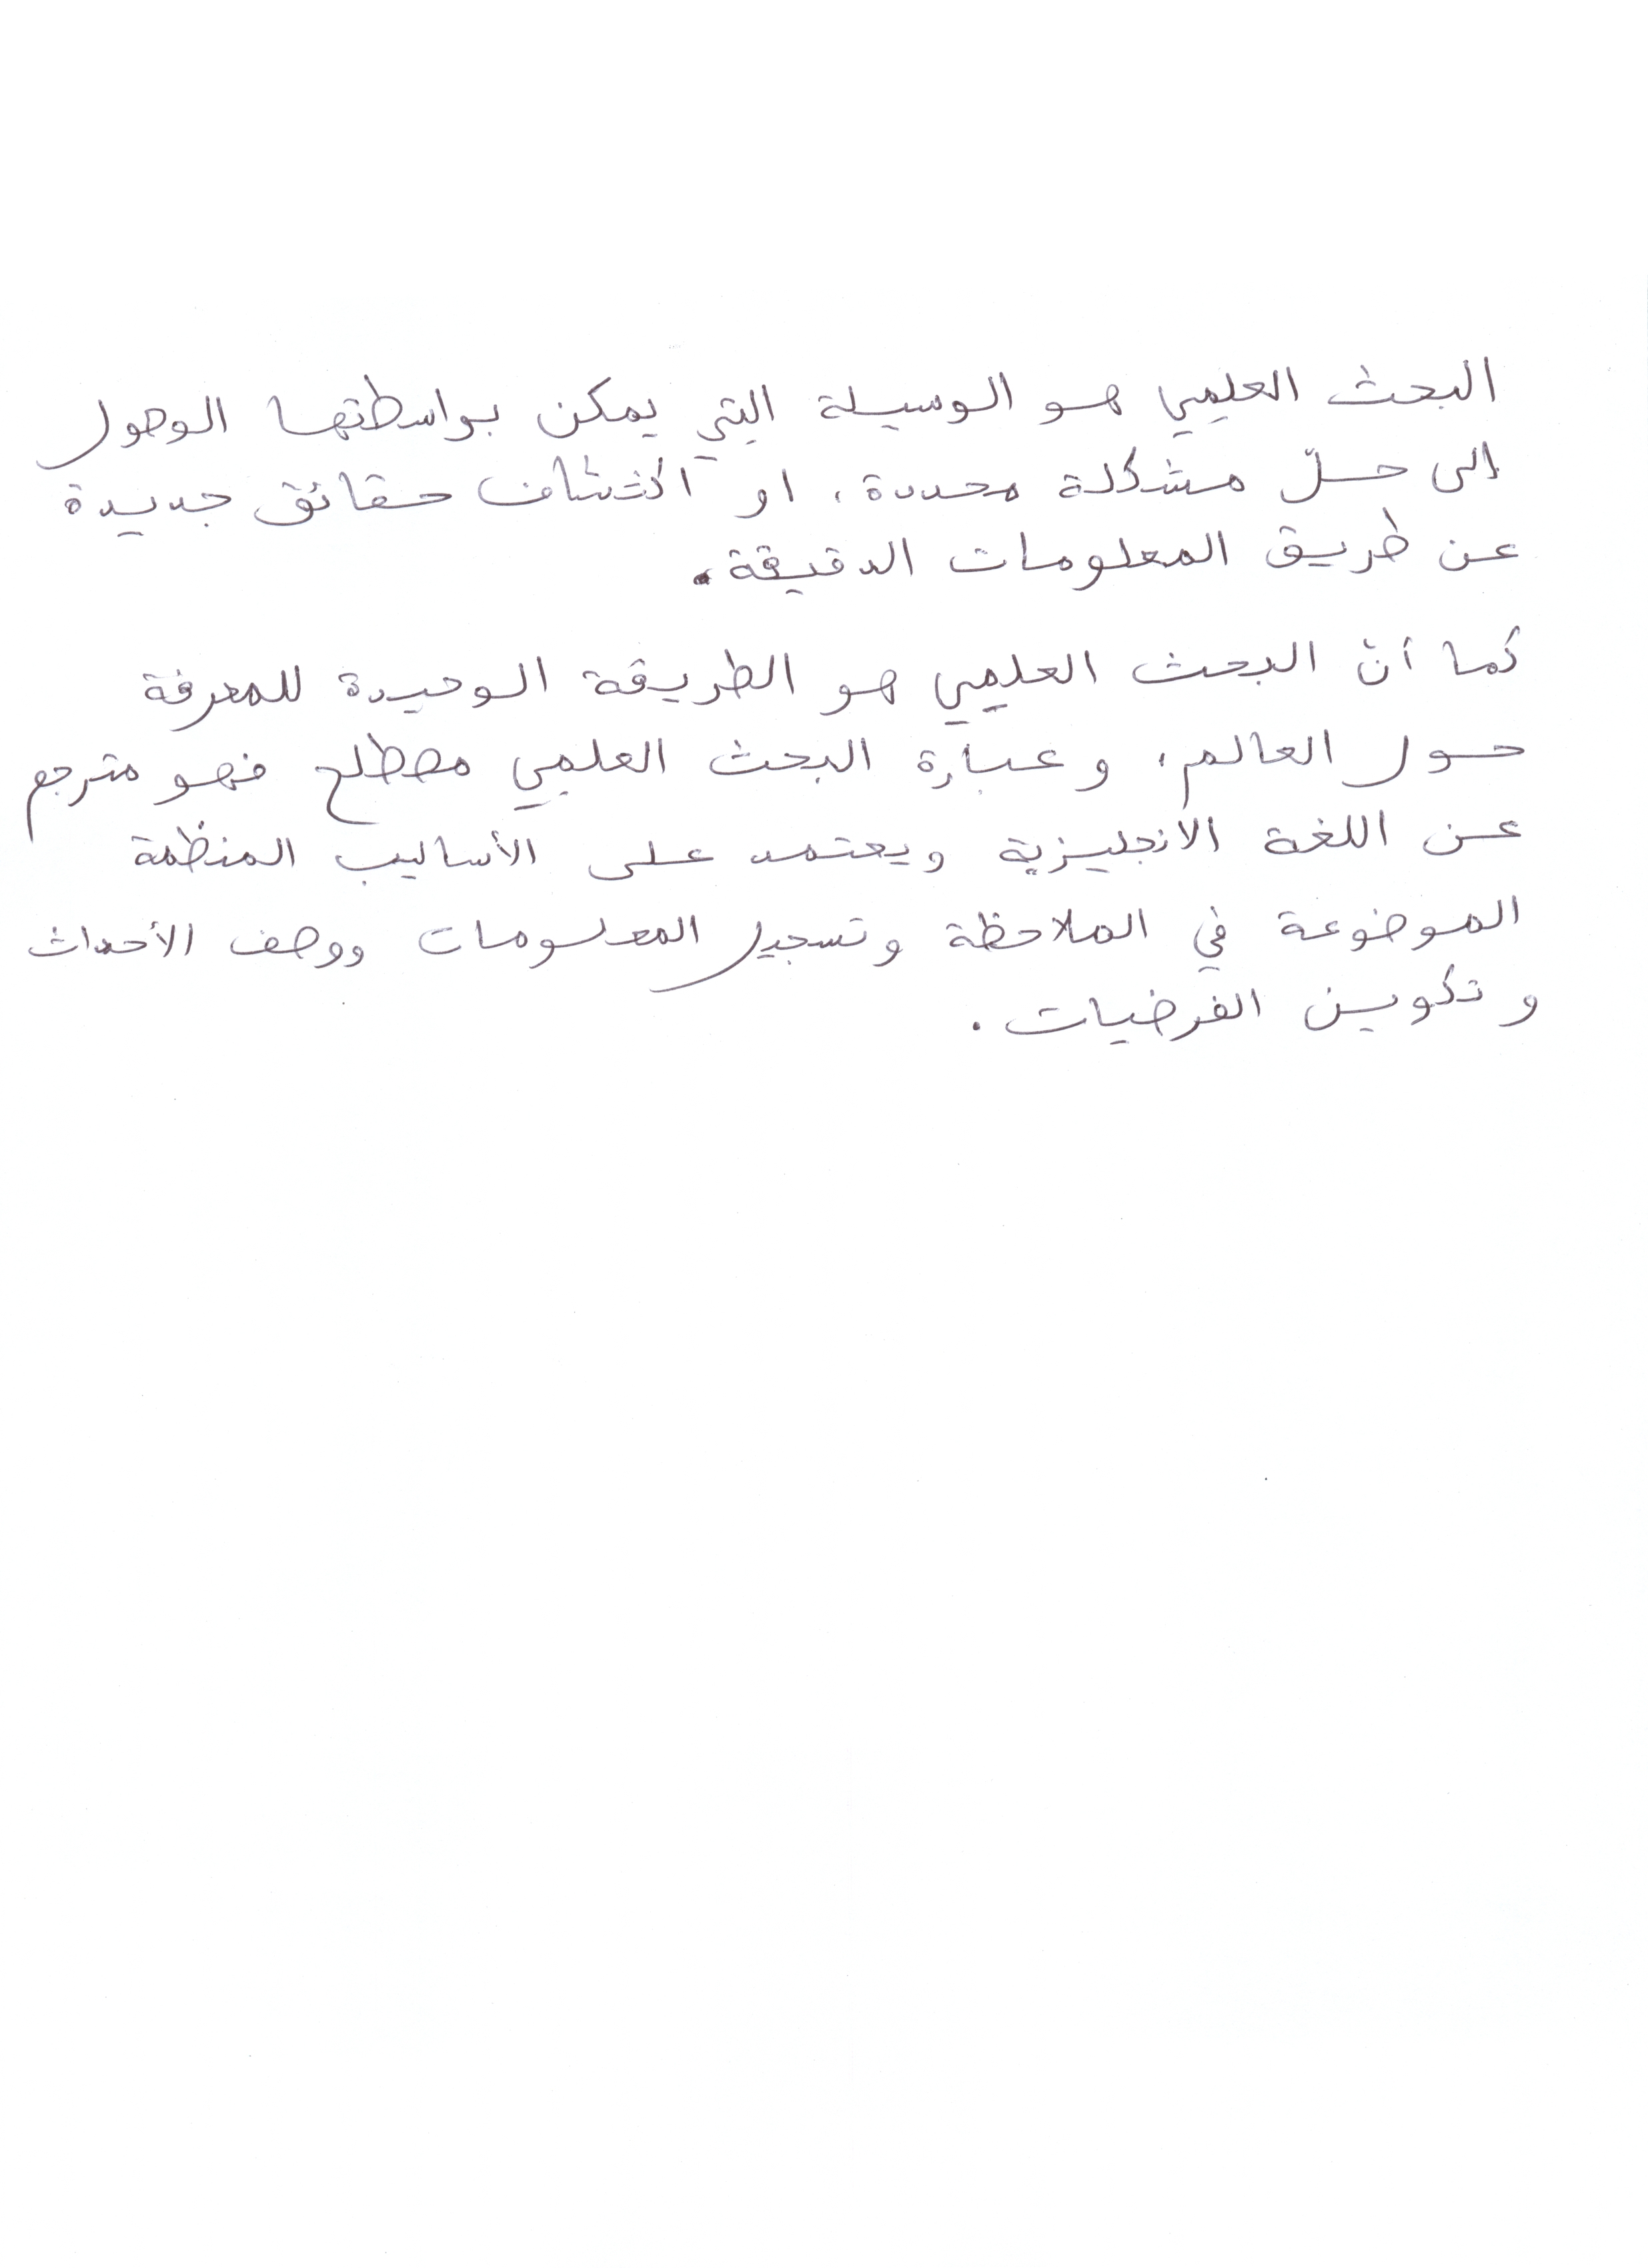 البحث العلمي هو الوسيلة التي يمكن بواسطتها الوصول
إلى حلّ مشكلة محددة، او اكتشاف حقائق جديدة
عن طريق المعلومات الدقيقة.
كما أنّ البحث العلمي هو الطريقة الوحيدة للمعرفة
حول العالم، وعبارة البحث العلمي مصطلح فهو مترجم
عن اللغة الانجليزية ويعتمد على الأساليب المنظمة
الموضوعة في الملاحظة وتسجيل المعلومات ووصف الأحداث
وتكوين الفرضيات.